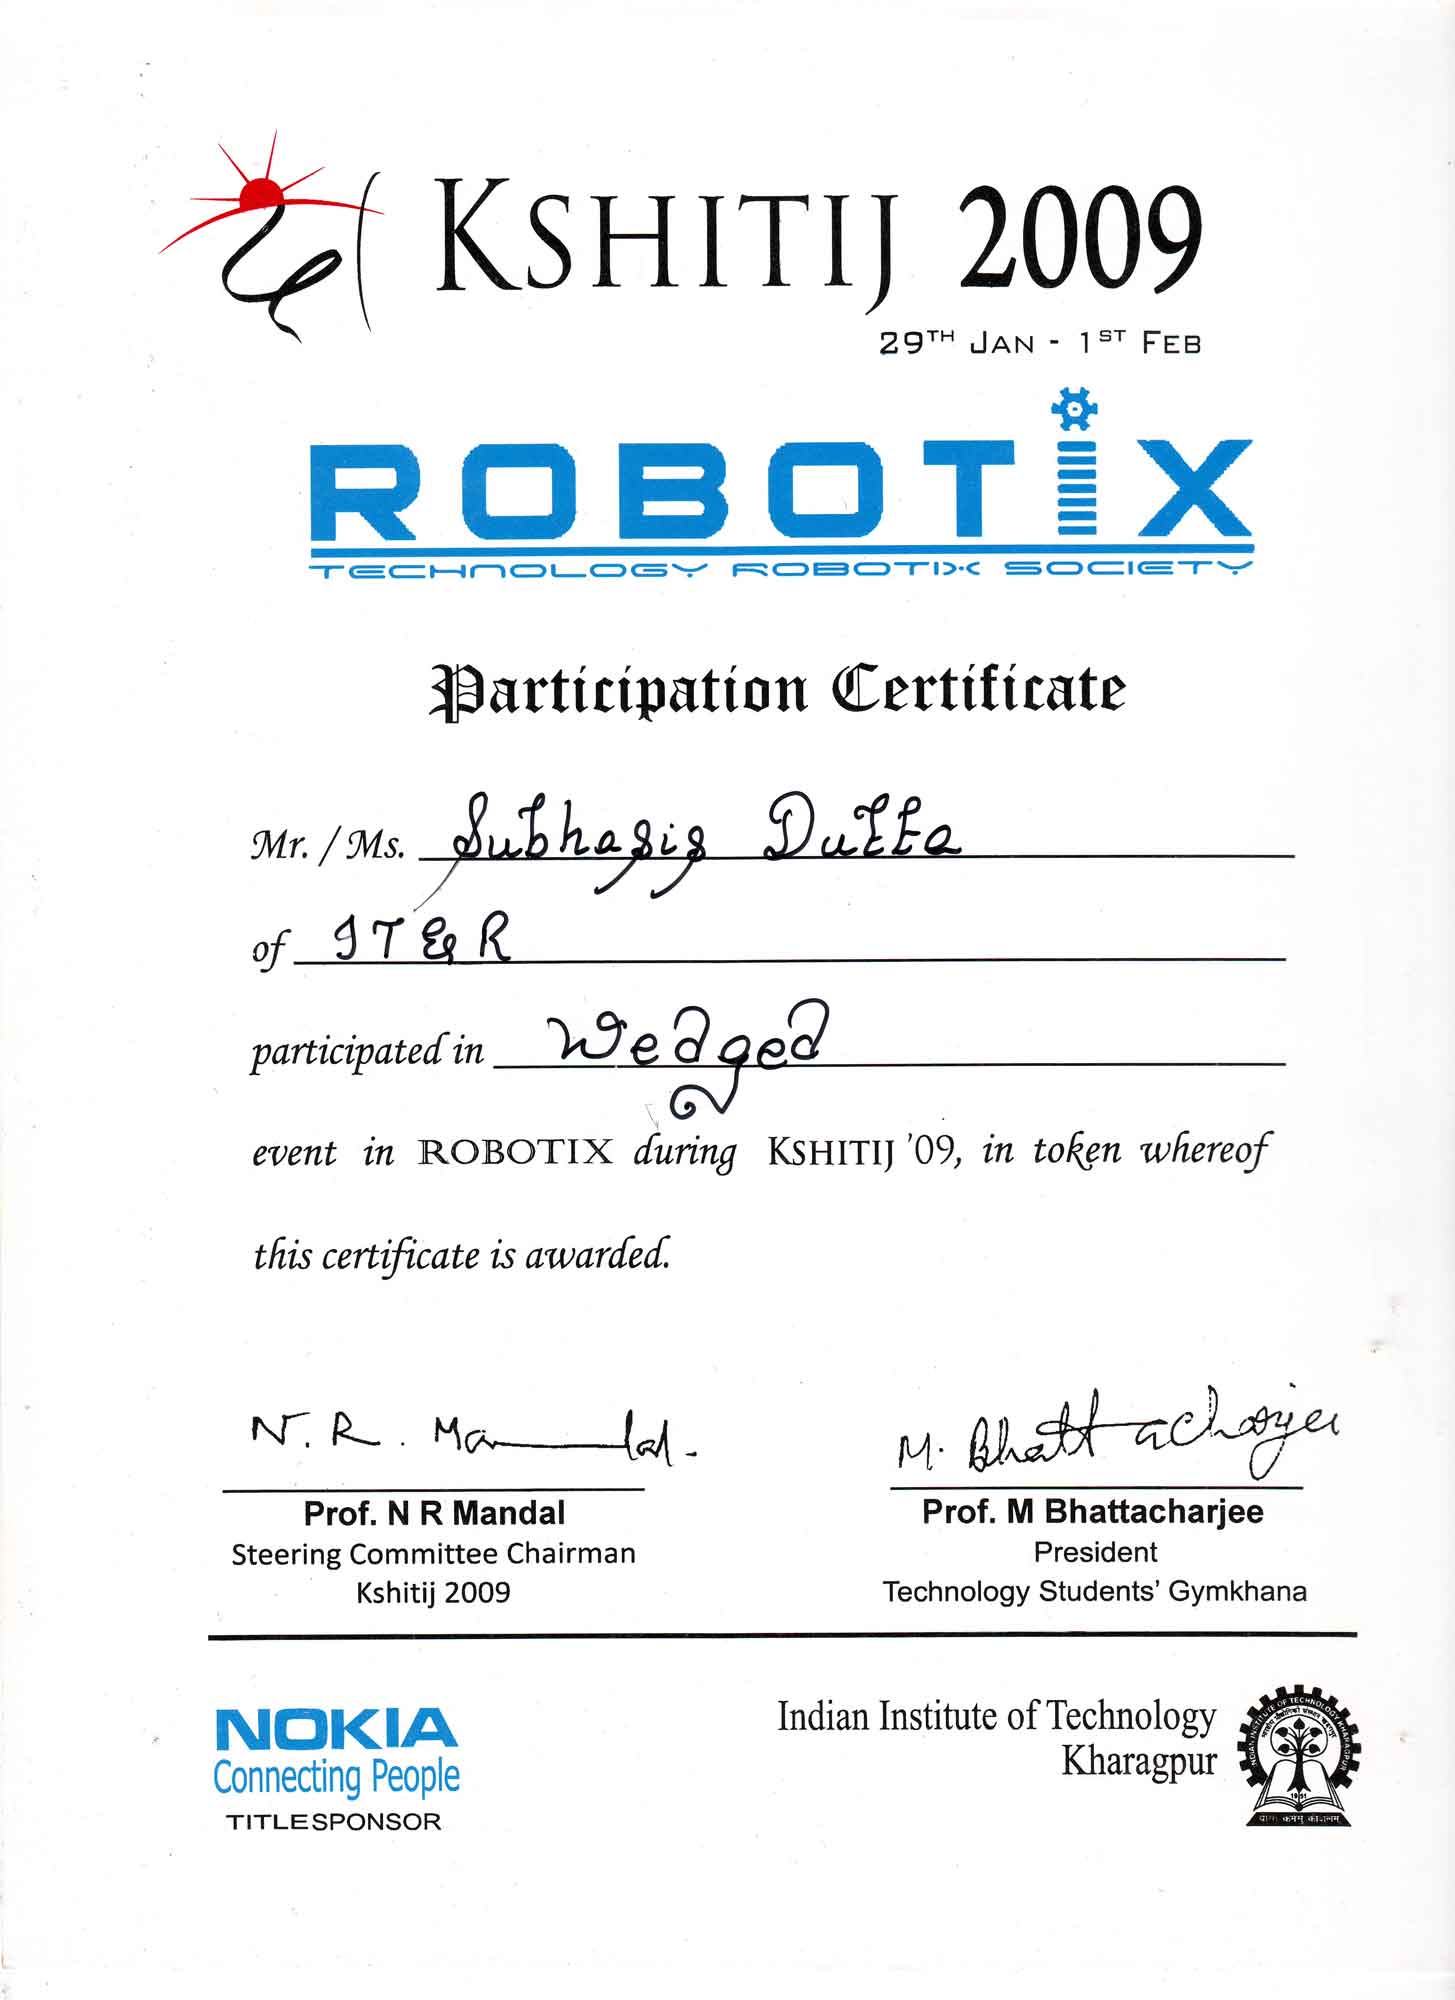 KSHITIJ 2009
29TH JAN - 1ST FEB
ROBOTIX
TECHNOLOGY ROBOTIX SOCIETY
Participation Certificate
Mr. / Ms. Subhasis Dutta
of IT&R
participated in Wedged
event in ROBOTIX during KSHITIJ '09, in token whereof
this certificate is awarded.
N. R. Mandal.
M. Bhattacharjee
Prof. N R Mandal
Steering Committee Chairman
Kshitij 2009
Prof. M Bhattacharjee
President
Technology Students' Gymkhana
NOKIA
Connecting People
TITLE SPONSOR
Indian Institute of Technology
Kharagpur
INDIAN INSTITUTE OF TECHNOLOGY KHARAGPUR
1951